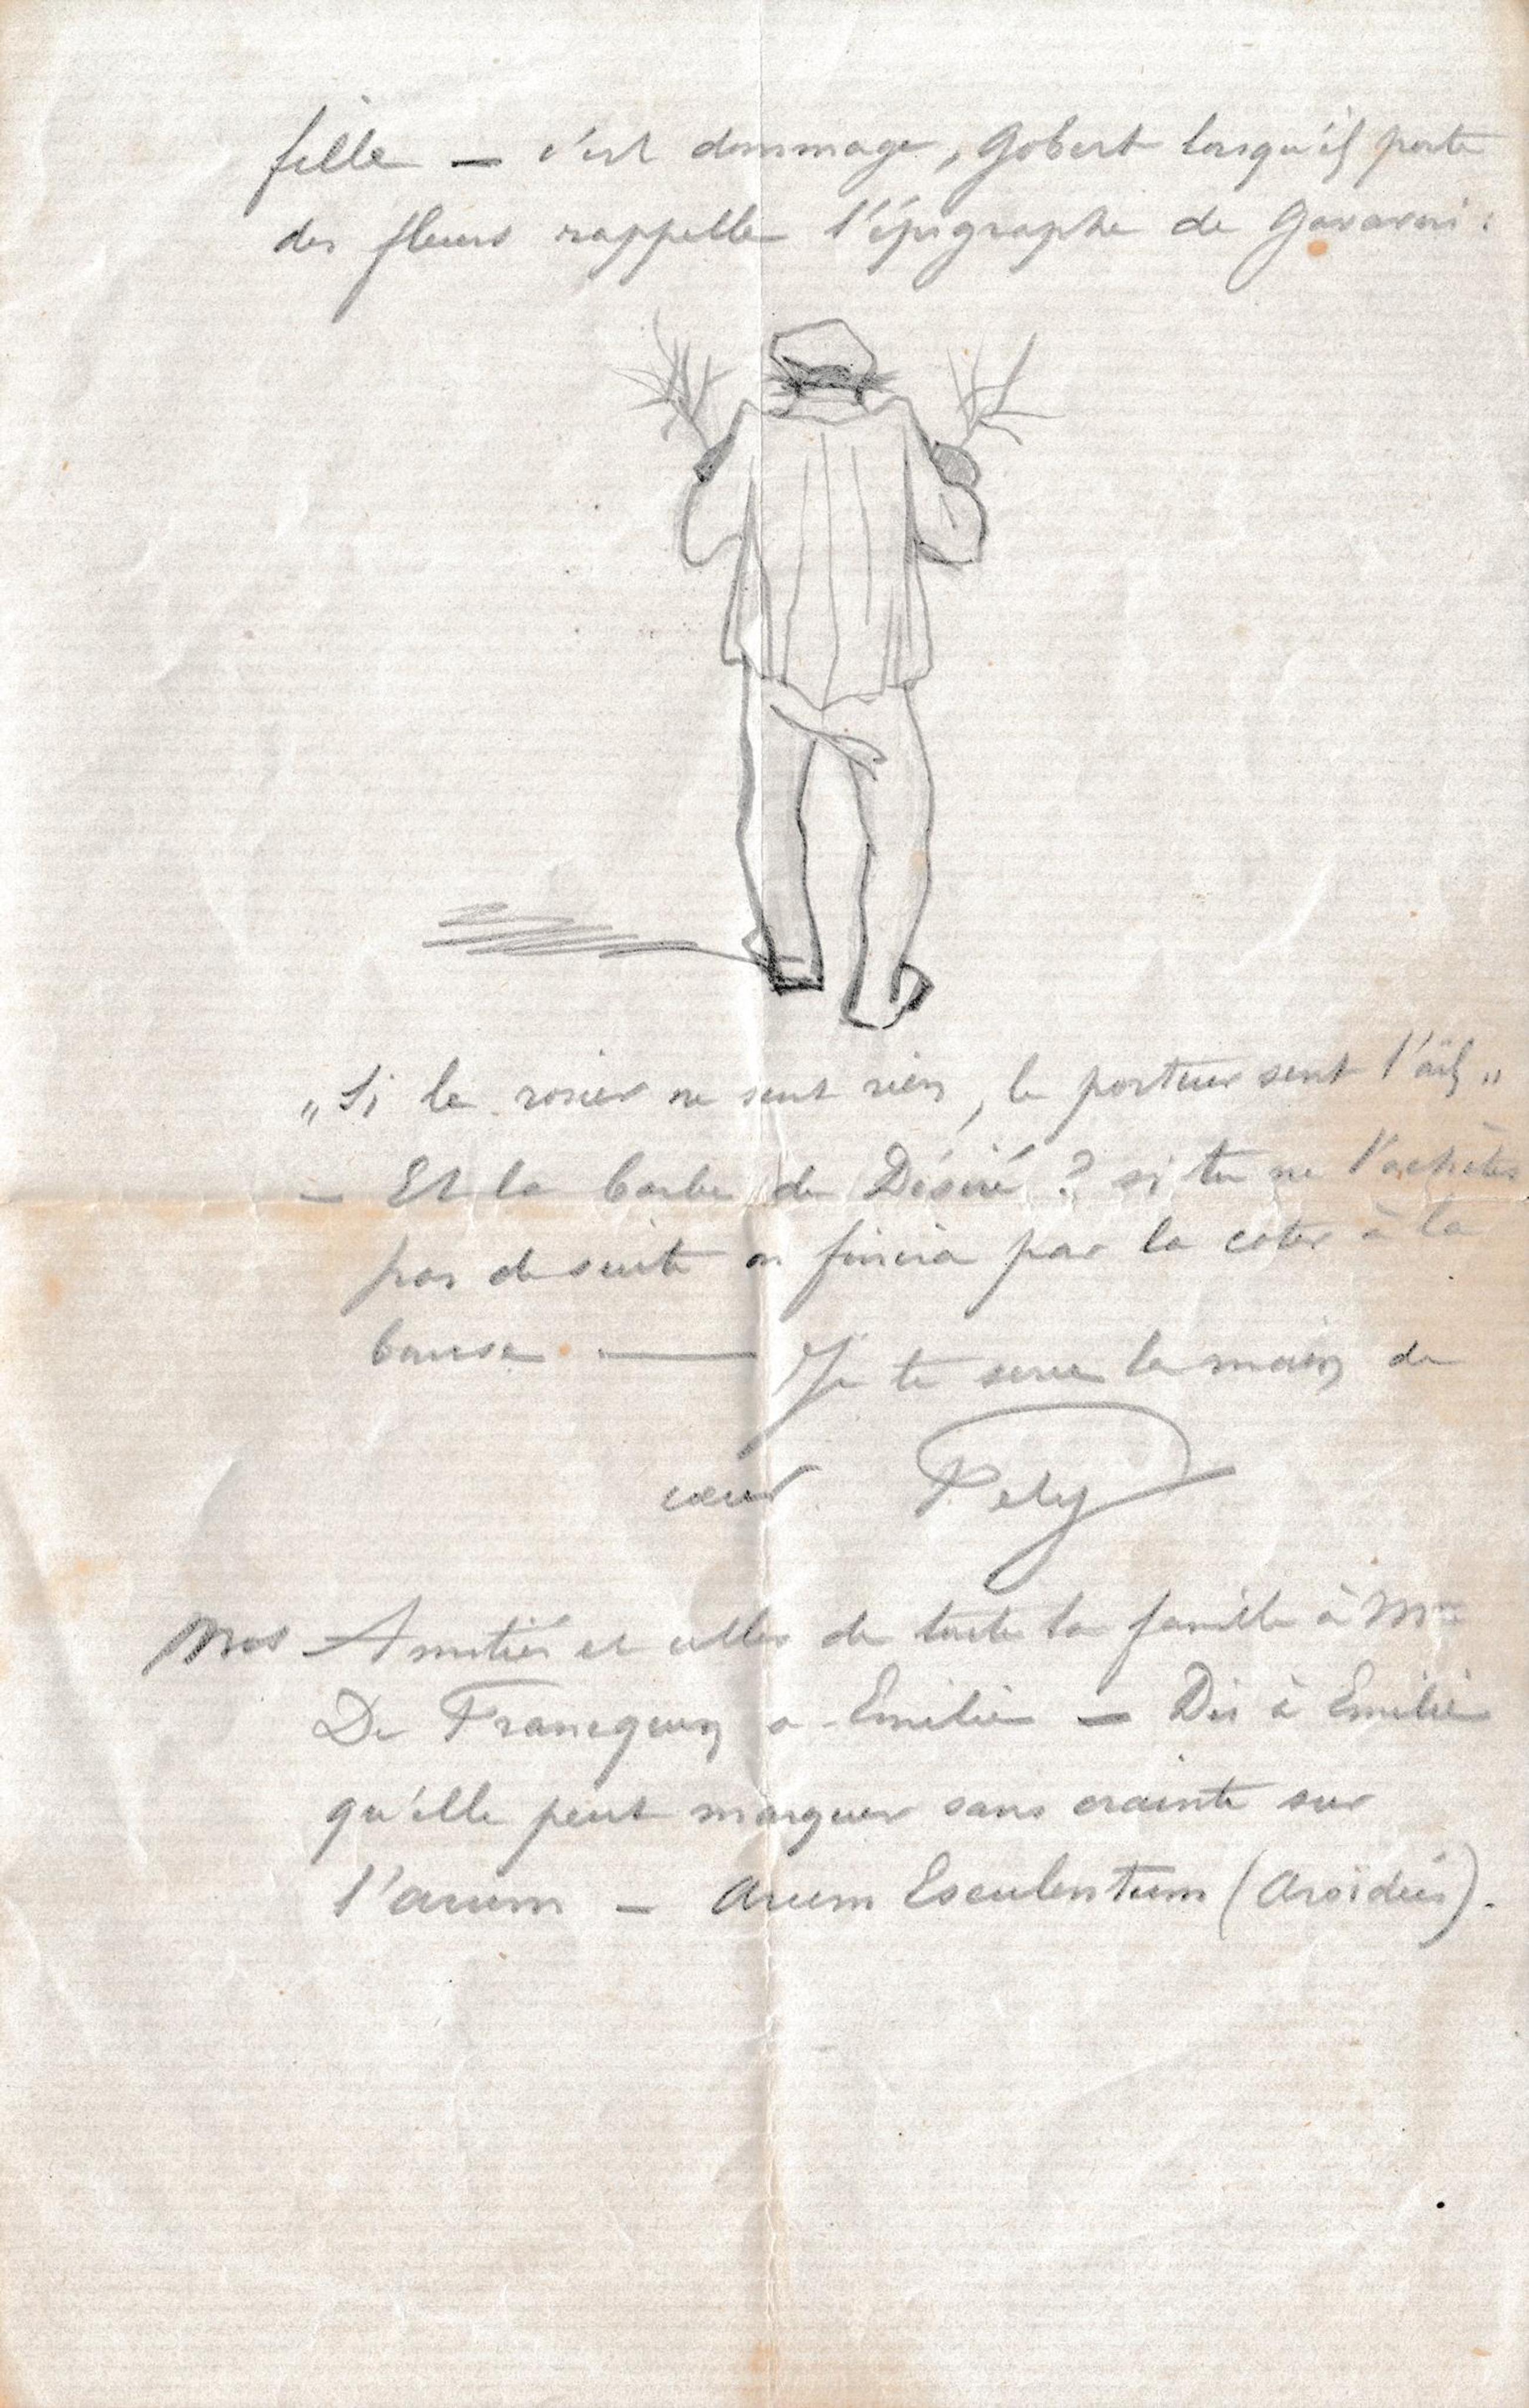 fille — c'est dommage, Gobert lorsqu'il porte
des fleurs rappelle l'épigraphe de Gavarni :
„Si le rosier ne sent rien, le porteur sent l'ail„
— Et la barbe de Désiré ? si tu ne l'achètes
pas de suite on finira par la coter à la
bourse — Je te serre la main de
cœur Fély
Mes Amitiés et celles de toute la famille à Mme
De Francquen a Emilie — Dis à Emilie
qu'elle peut marquer sans crainte sur
l'arum — Arum Esculentum (Aroïdées).